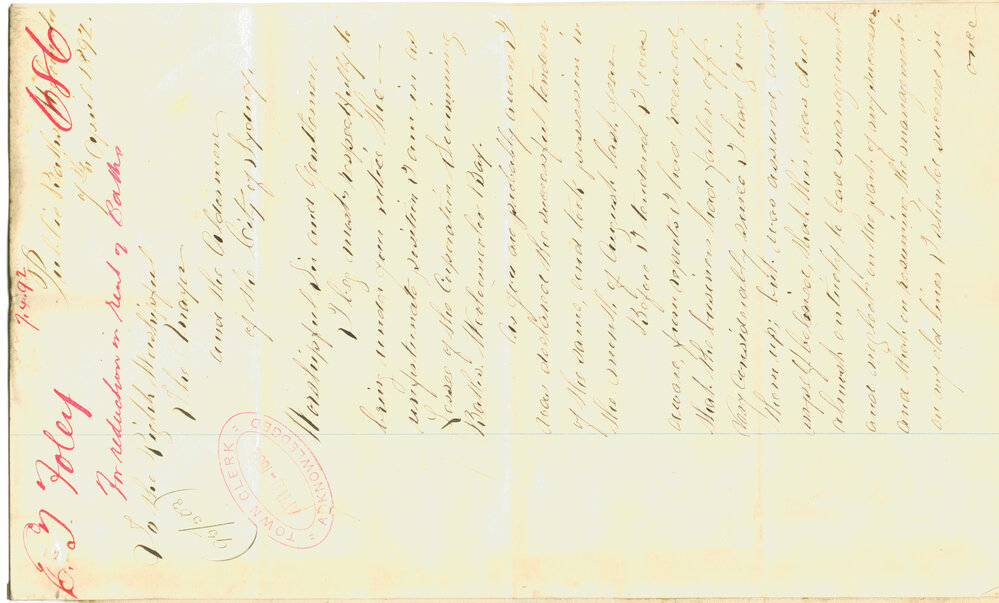 7.4.92
686
E. T. Foley
For reduction in rent of Baths
Public Baths
7th April 1892.
To the Right Worshipful
The Mayor
and the Aldermen
of the City of Sydney
92/508
TOWN CLERK
"ACKNOWLEDGED"
Worshipful Sir and Gentlemen
I beg most respectfully to
bring under your notice the
unfortunate position I am in as
Lessee of the Corporation Swimming
Baths, Woolloomooloo Bay.
As you are probably aware I
was declared the successful tenderer
of the same, and took possession in
the month of August last year.
Before I tendered I was
aware from reports I had received,
that the business had fallen off
very considerably since I had given
them up, but was assured, and
myself believed that this was due
almost entirely to bad management
and neglect on the part of my successor
and that on resuming the management
on my old lines I should succeed in
once